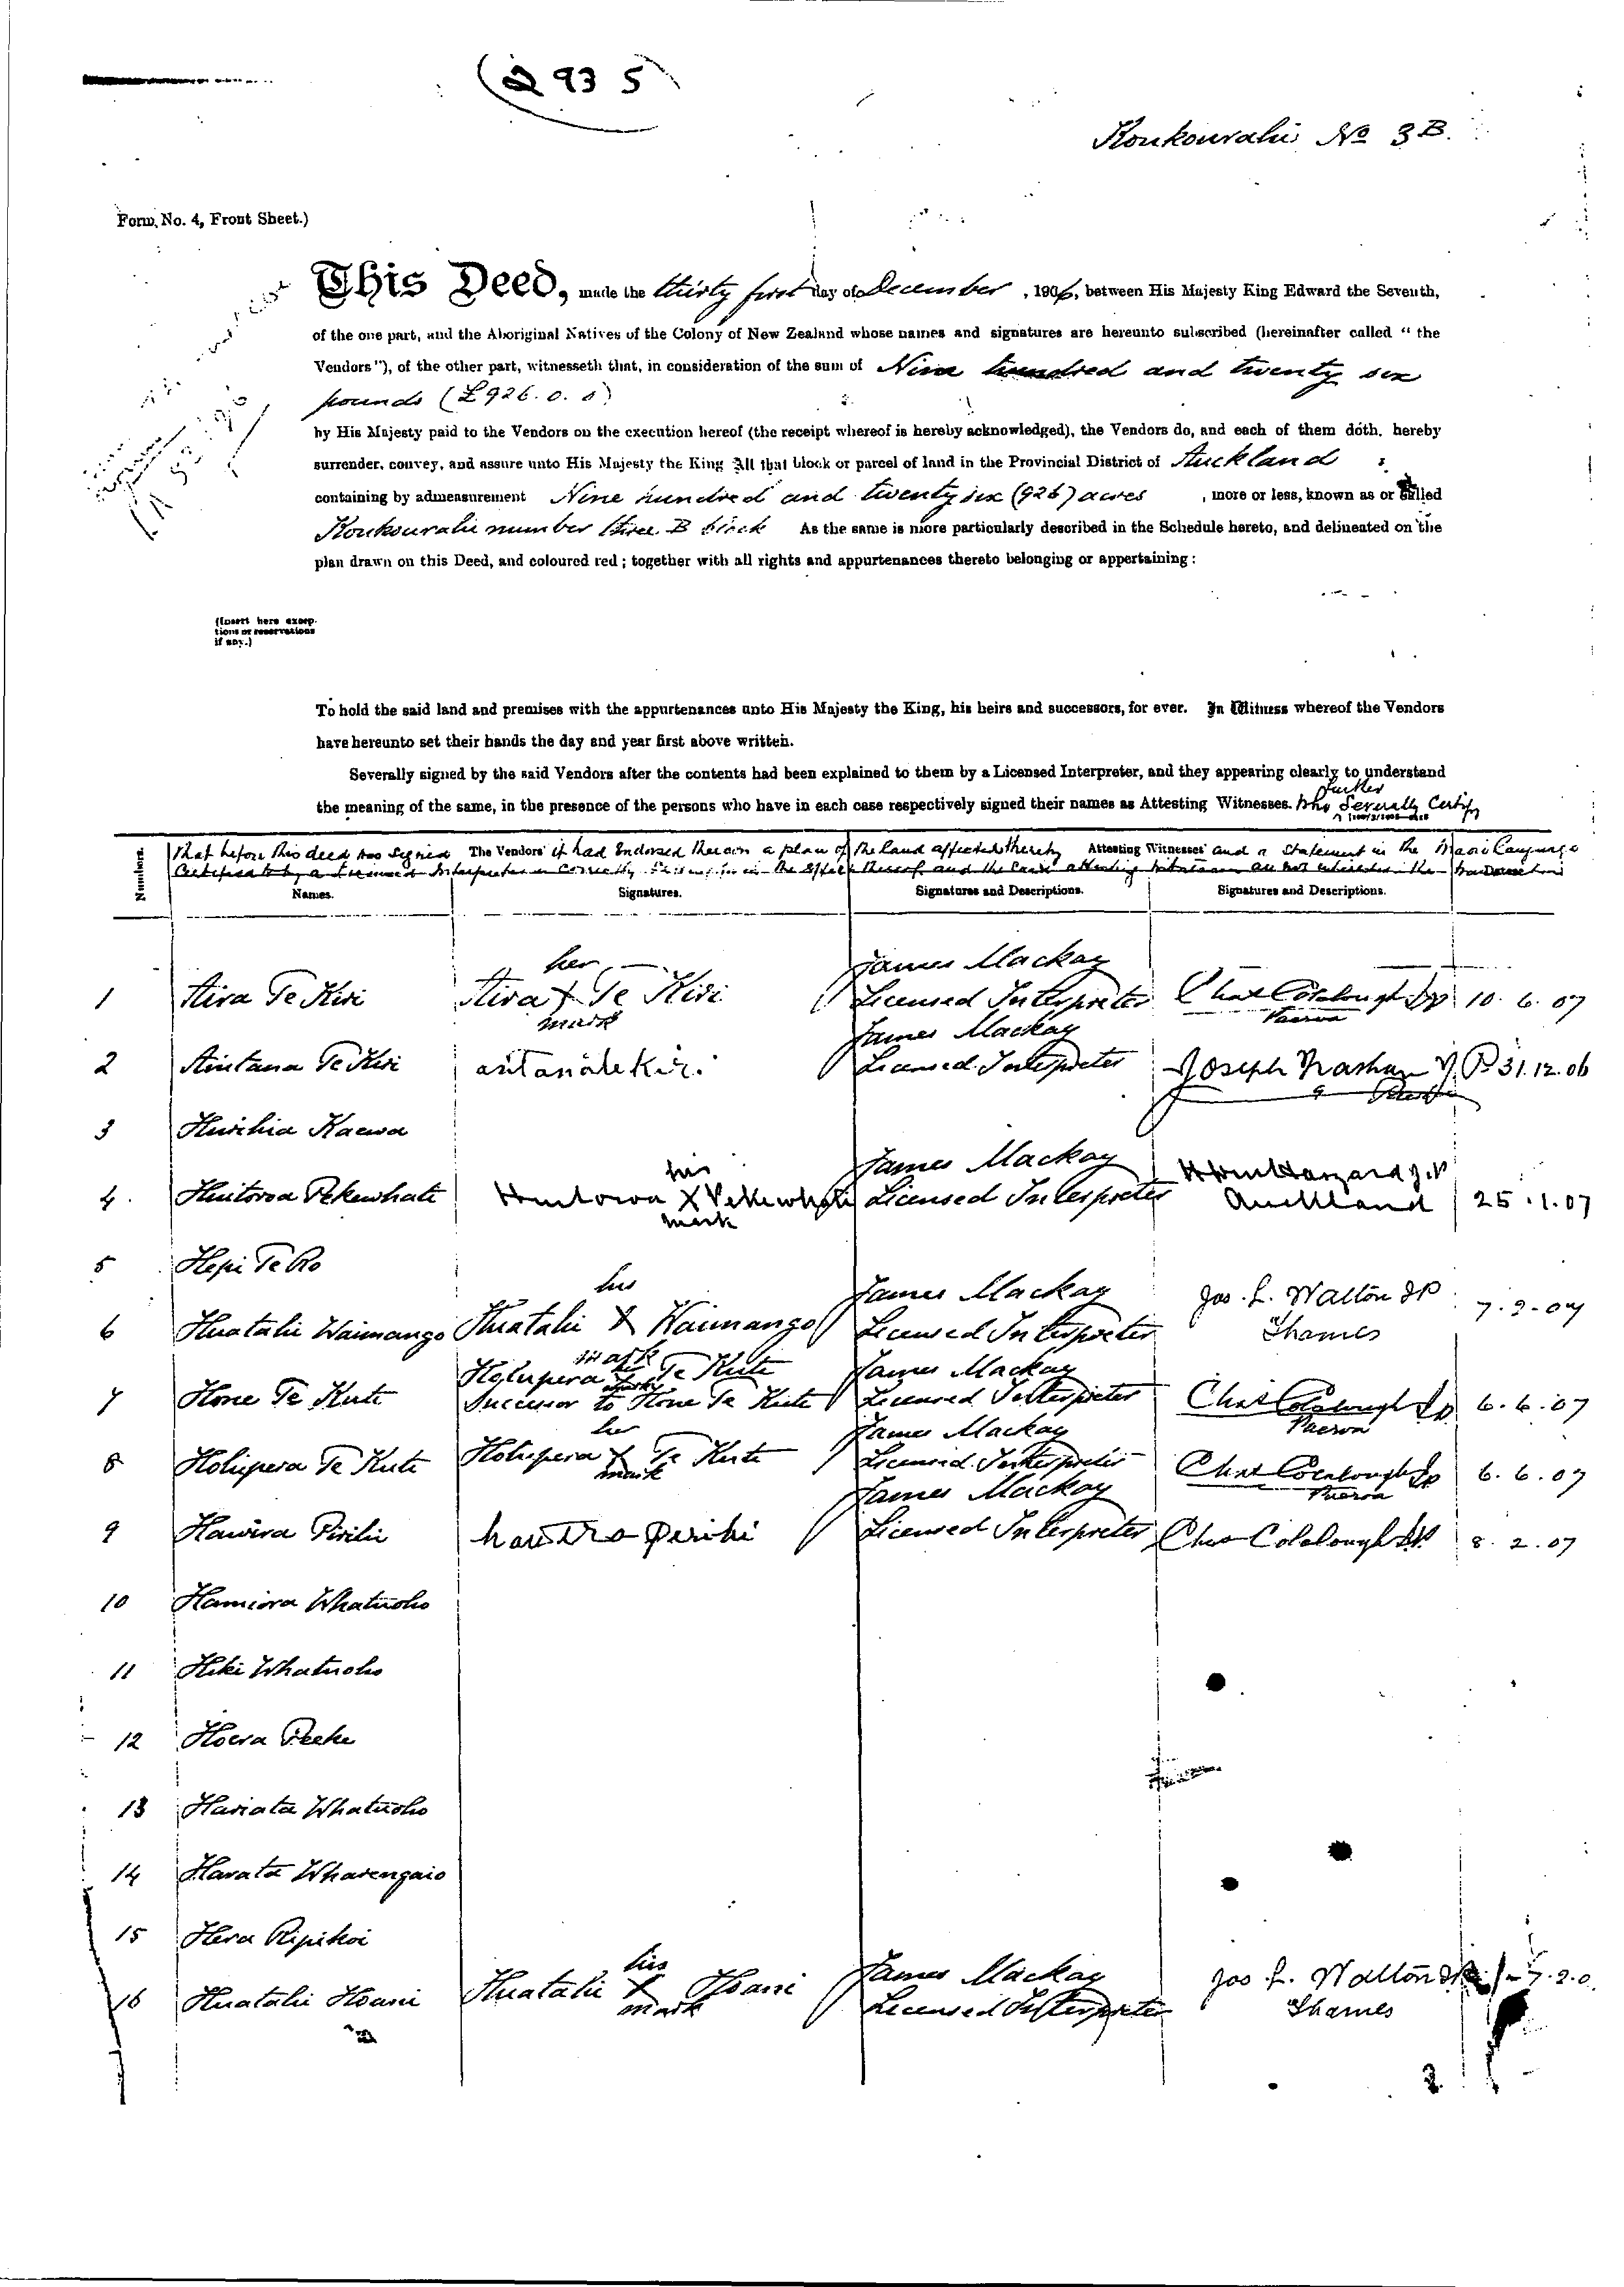 2935
Koukourahi No 3B.
Form No. 4, Front Sheet.)
This Deed, made the thirty first day of December, 1906, between His Majesty King Edward the Seventh,
of the one part, and the Aboriginal Natives of the Colony of New Zealand whose names and signatures are hereunto subscribed (hereinafter called "the
Vendors"), of the other part, witnesseth that, in consideration of the sum of Nine hundred and twenty six
pounds (£926.0.0)
by His Majesty paid to the Vendors on the execution hereof (the receipt whereof is hereby acknowledged), the Vendors do, and each of them doth, hereby
surrender, convey, and assure unto His Majesty the King All that block or parcel of land in the Provincial District of Auckland
containing by admeasurement Nine hundred and twenty six (926) acres, more or less, known as or called
Koukourahi number three B block As the same is more particularly described in the Schedule hereto, and delineated on the
plan drawn on this Deed, and coloured red; together with all rights and appurtenances thereto belonging or appertaining:
(Insert here excep-
tions or reservations
if any.)
To hold the said land and premises with the appurtenances unto His Majesty the King, his heirs and successors, for ever. In Witness whereof the Vendors
have hereunto set their hands the day and year first above written.
Severally signed by the said Vendors after the contents had been explained to them by a Licensed Interpreter, and they appearing clearly to understand
further
the meaning of the same, in the presence of the persons who have in each case respectively signed their names as Attesting Witnesses. Who Severally Certify
that before this deed was signed The Vendors' it had endorsed thereon a plan of the land affected thereby Attesting Witnesses' and a statement in the Maori Language
Certified to by a Licensed Interpreter as Correctly the effect thereof and the said attesting witnesses are not interested in the transaction
Numbers. Names. Signatures. Signatures and Descriptions. Signatures and Descriptions.
her James Mackay
1 Hira Te Kiri Hira X Te Kiri Licensed Interpreter Chas Colclough JP 10.6.07
mark Paeroa
James Mackay
2 Aintana Te Kiri Licensed Interpreter Joseph Nathan JP 31.12.06
3 Huihia Kaewa
his James Mackay
4. Huitoroa Pekewhati X mark Licensed Interpreter Auckland 25.1.07
5 Hepi Te Ro
his James Mackay Jos. L. Walton JP
6 Huatahi Waimango Huatahi X Waimango Licensed Interpreter Thames 7.2.07
mark
Hohepera Te Kute James Mackay
7 Hone Te Kute Successor to Hone Te Kute Licensed Interpreter Chas Colclough JP 6.6.07
Paeroa
her James Mackay
8 Hohepera Te Kute Hohepera X Te Kute Licensed Interpreter Chas Colclough JP 6.6.07
mark Paeroa
James Mackay
9 Hawira Pirihi Licensed Interpreter Chas Colclough JP 8.2.07
10 Hamiora Whatuoho
11 Hiki Whatuoho
12 Hoera Peehe
13 Hariata Whatuoho
14 Harata Wharengaio
15 Hera Ripikoi
his James Mackay Jos L. Walton JP
16 Huatahi Hoani Huatahi X Hoani Licensed Interpreter Thames 7.2.0
mark
2